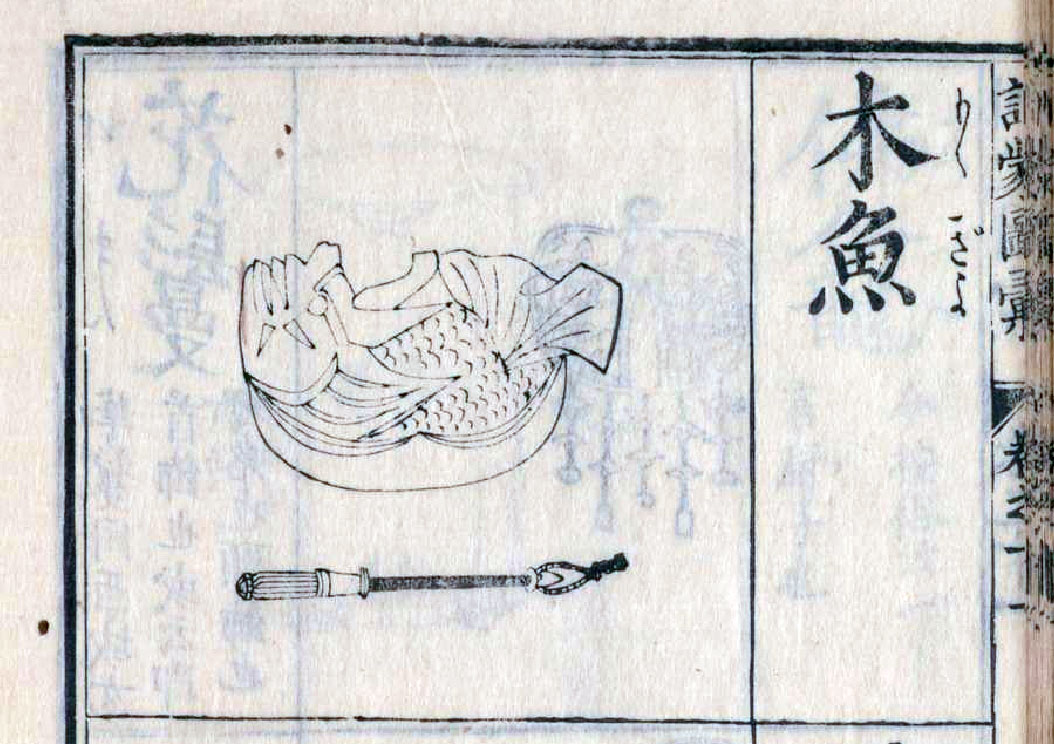 訓蒙圖彙
卷之十一
もく ぎよ
木魚